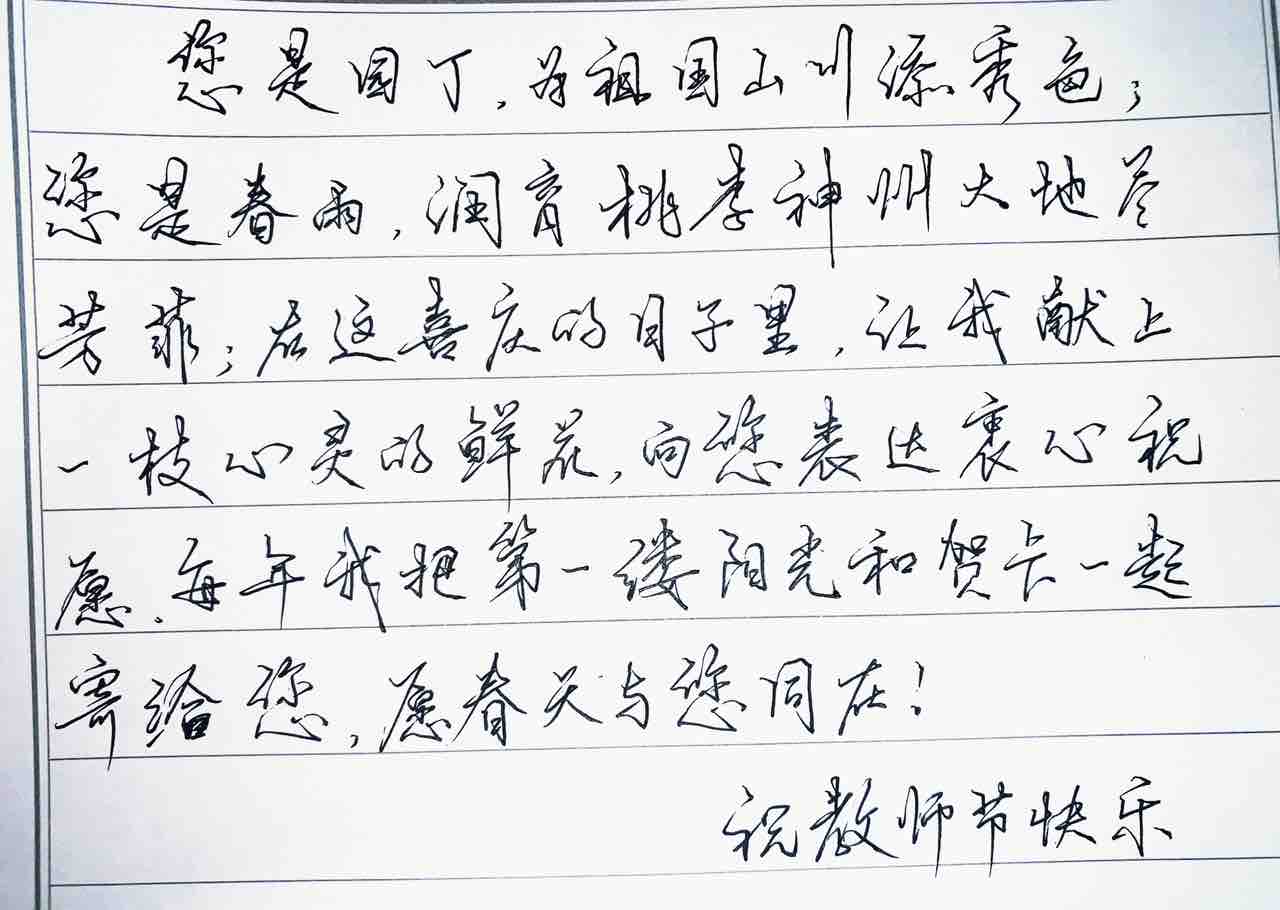 您是园丁,为祖国山川添秀色;
您是春雨,润育桃李神州大地尽
芳菲;在这喜庆的日子里,让我献上
一枝心灵的鲜花,向您表达衷心祝
愿.每年我把第一缕阳光和贺卡一起
寄给您,愿春天与您同在!
祝教师节快乐